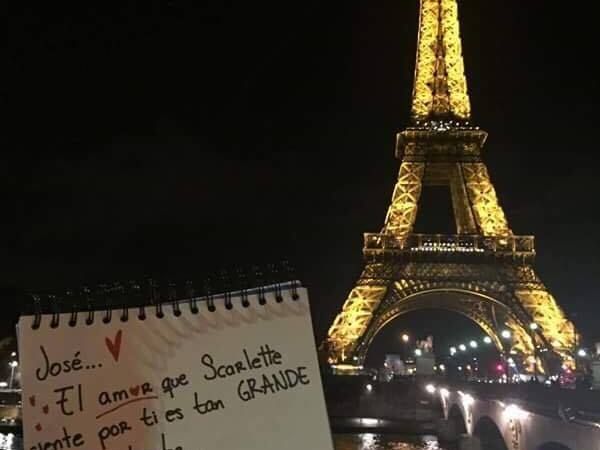 José... ♥
El amor que Scarlette
siente por ti es tan GRANDE